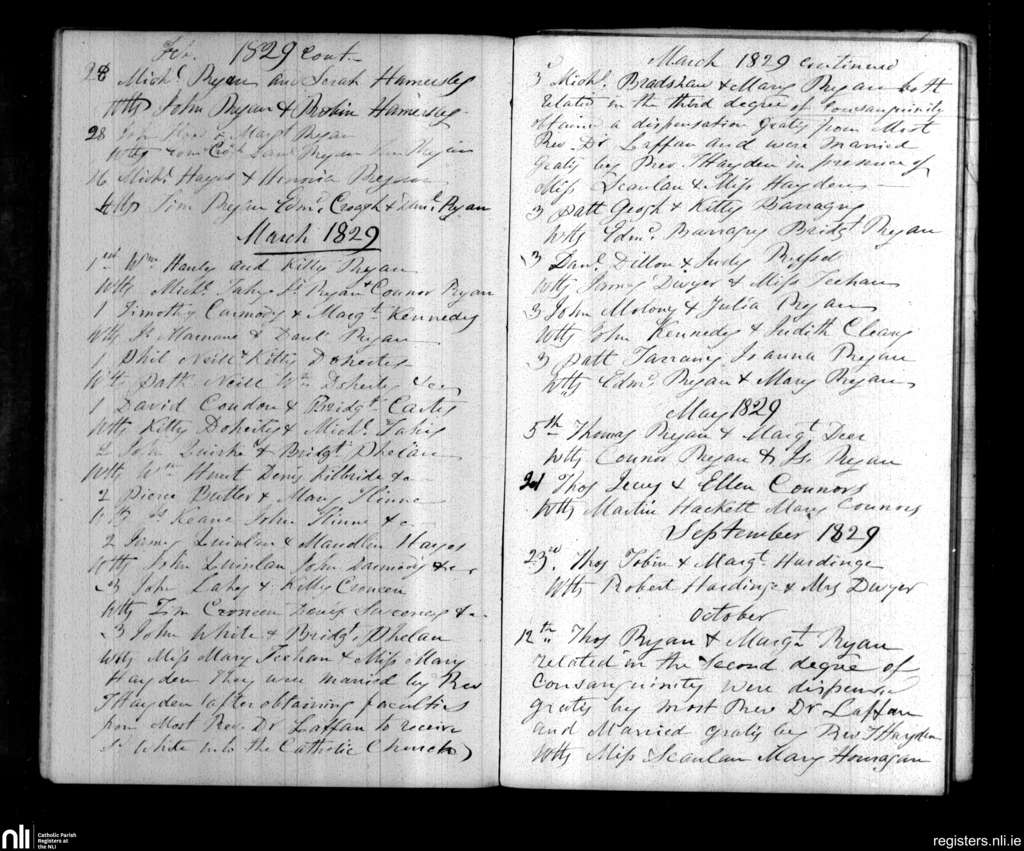 Feb. 1829 cont.
28 Michl. Ryan and Sarah Hamersley
Wtts John Ryan & Hamersley
28 John & Margt Ryan
Wtts Danl Ryan
16 Michl Hayes & Ryan
Wtts Tim Ryan Edmd. Creagh & Danl. Ryan
March 1829
1st Wm Hanly and Kitty Ryan
Wtts Michl. Fahy Js Ryan & Connor Ryan
1 Timothy Carmody & Margt. Kennedy
Wtts Js & Danl Ryan
1 Phil Neill & Kitty Doherty
Wtts Patk Neill Wm Doherty
1 David Condon & Bridgt.
Wtts Kitty Doherty & Michl. Fahy
2 John & Bridgt Phelan
Wtts Wm Hunt Denis Kilbride &c
2 Pierce Butler & Mary
Wtts Js Keane John &c
2 James Quinlan & Maudlin Hayes
Wtts John Quinlan John &c
3 John Lahey & Kitty Croneen
Wtts Tim Croneen Sweeney &c
3 John White & Bridgt. Phelan
Wtts Miss Mary Feehan & Miss Mary
Hayden They were married by Rev
T Hayden (after obtaining faculties
from Most Rev. Dr Laffan to receive
Js White into the Catholic Church)
March 1829 continued
3d Michl. Bradshaw & Mary Ryan both
related in the third degree of Consanguinity
obtained a dispensation gratis from Most
Rev. Dr Laffan and were married
gratis by Rev T Hayden in presence of
Miss Scanlan & Miss Hayden
3 Patt Geogh & Kitty Barragry
Wtts Edmd. Barragry Bridgt. Ryan
3 Danl. Dillon & Judy
Wtts James Dwyer & Miss Feehan
3 John Molony & Julia Ryan
Wtts John Kennedy & Judith Cleary
3 Patt Joanna Ryan
Wtts Edmd. Ryan & Mary Ryan
May 1829
5th Thomas Ryan & Margt Deer
Wtts Connor Ryan & Js. Ryan
Thos & Ellen Connors
Wtts Martin Hackett Mary Connors
September 1829
23d. Thos Tobin & Margt. Hardinge
Wtts Robert Hardinge & Mrs Dwyer
October
12th Thos Ryan & Margt Ryan
related in the second degree of
Consanguinity were dispensed
gratis by most Rev Dr Laffan
and Married gratis by Rev T Hayden
Wtts Miss Scanlan Mary Houragan
nli
Catholic Parish
Registers at
the NLI
registers.nli.ie